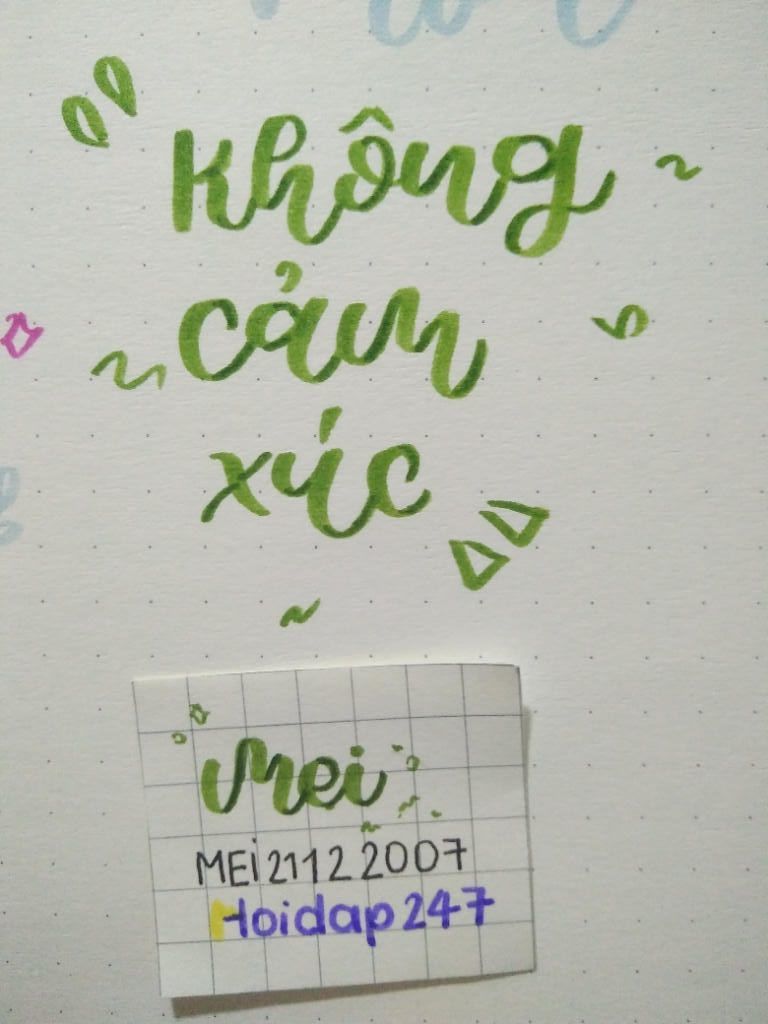 Không
cảm
xúc
Mei
MEi21122007
Hoidap247